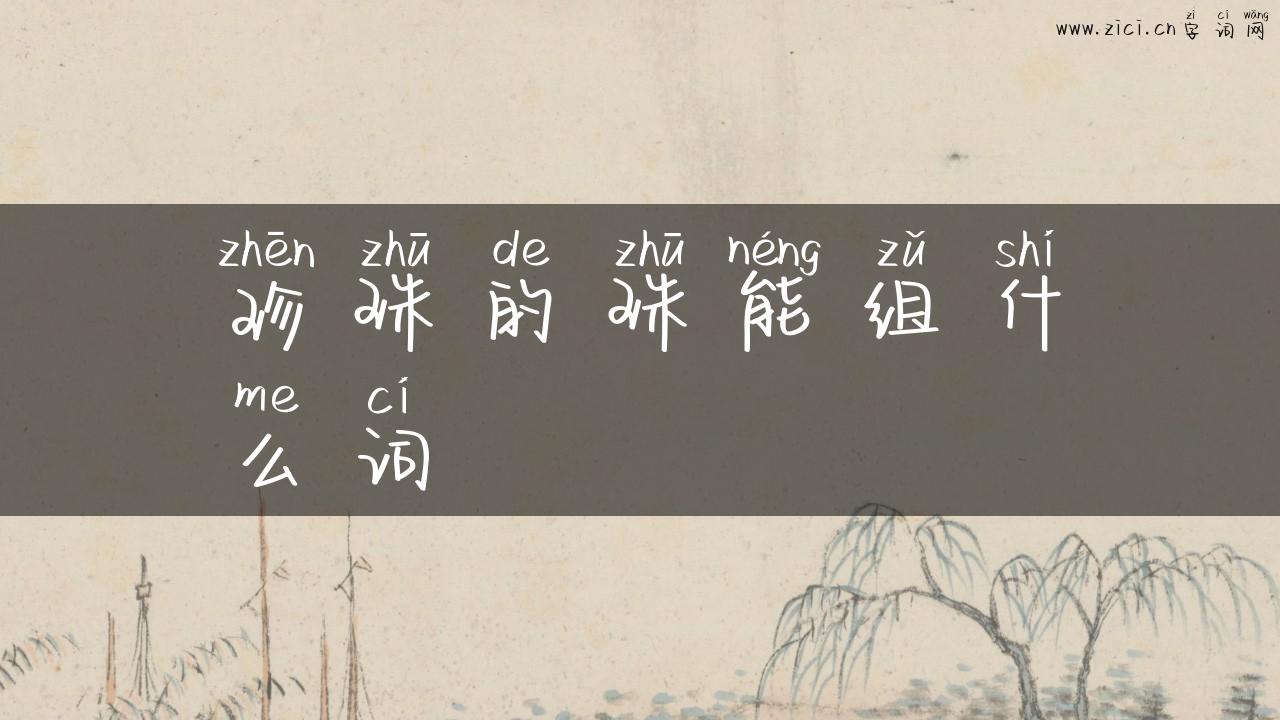 zì cí wǎng
www.zici.cn 字 词 网
zhēn zhū de zhū néng zǔ shí
珍 珠 的 珠 能 组 什
me cí
么 词